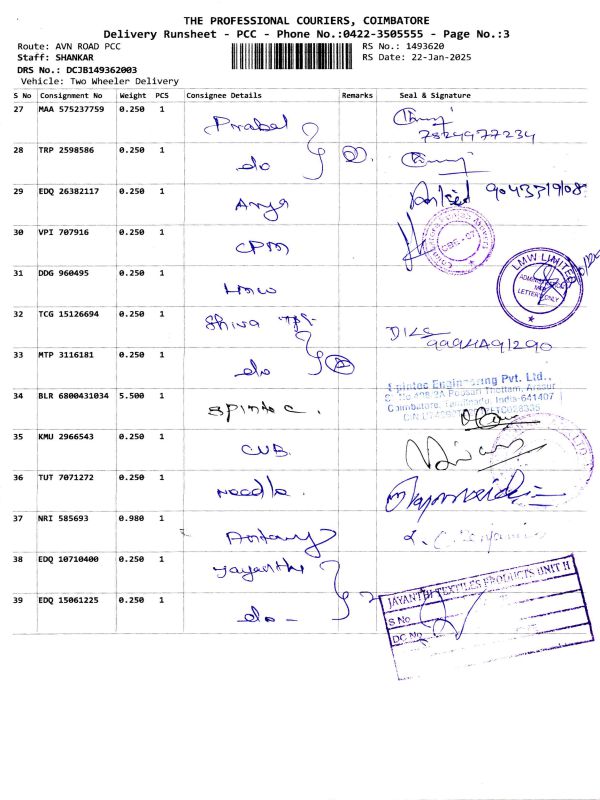 THE PROFESSIONAL COURIERS, COIMBATORE
Delivery Runsheet - PCC - Phone No.:0422-3505555 - Page No.:3
Route: AVN ROAD PCC
RS No.: 1493620
Staff: SHANKAR
RS Date: 22-Jan-2025
DRS No.: DCJB149362003
Vehicle: Two Wheeler Delivery
S No Consignment No Weight PCS Consignee Details Remarks Seal & Signature
27 MAA 575237759 0.250 1 Prabel
7829977234
28 TRP 2598586 0.250 1 do 2
29 EDQ 26382117 0.250 1 Arya
30 VPI 707916 0.250 1 CPM
31 DDG 960495 0.250 1 LMW
LMW LIMITED
32 TCG 15126694 0.250 1 Shiva
33 MTP 3116181 0.250 1 do 2
34 BLR 6800431034 5.500 1 Spintec.
Spintec Engineering Pvt. Ltd.,
Coimbatore, Tamilnadu, India-641407
35 KMU 2966543 0.250 1 CUB
36 TUT 7071272 0.250 1 Needle.
37 NRI 585693 0.980 1 Antany
38 EDQ 10710400 0.250 1 Jayanthi
39 EDQ 15061225 0.250 1 do - 2
JAYANTHI TEXTILES PRODUCTS UNIT II
S No
DC No